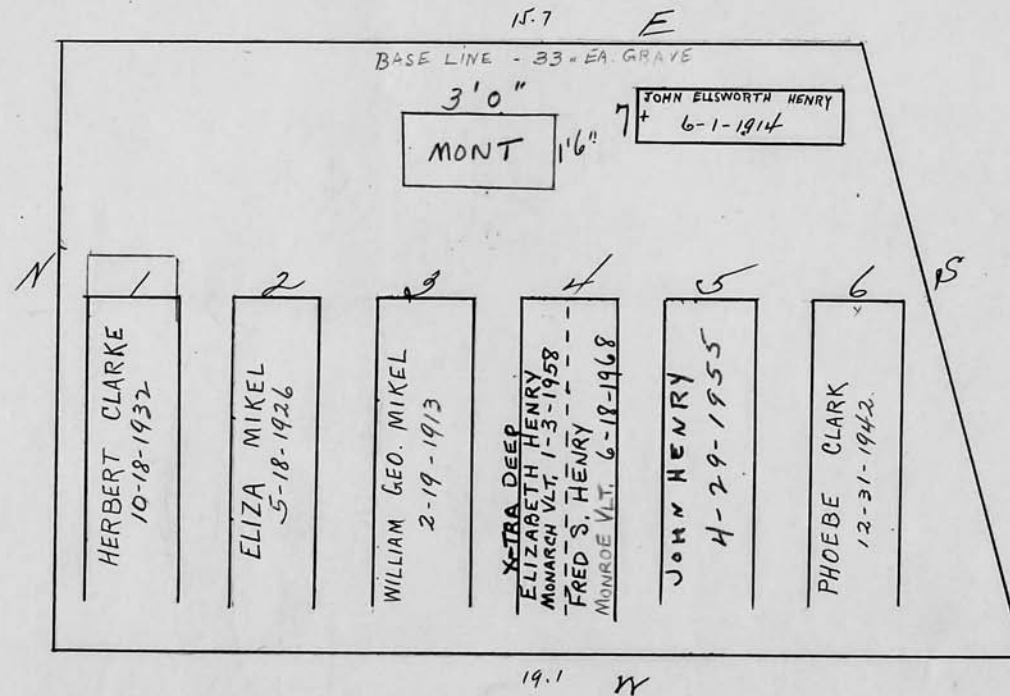 15.7 E
BASE LINE - 33" EA. GRAVE
3'0"
MONT
1'6"
7
JOHN ELLSWORTH HENRY
+ 6-1-1914
N
S
1
HERBERT CLARKE
10-18-1932
2
ELIZA MIKEL
5-18-1926
3
WILLIAM GEO. MIKEL
2-19-1913
4
X-TRA DEEP
ELIZABETH HENRY
MONARCH VLT. 1-3-1958
FRED S. HENRY
MONROE VLT. 6-18-1968
5
JOHN HENRY
4-29-1955
6
x
PHOEBE CLARK
12-31-1942
19.1 W